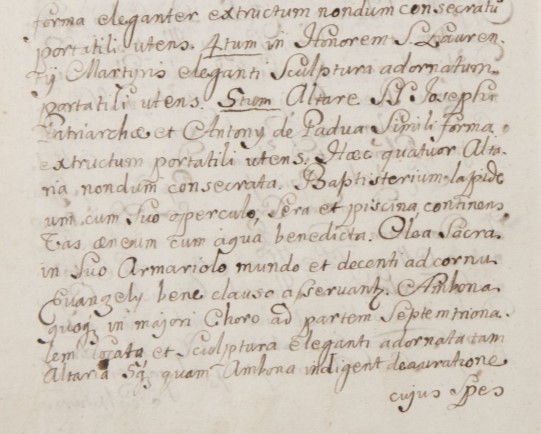 forma eleganter extructum nondum consecratū
portatili utens. 4tum in Honorem S. Lauren,
tij Martyris eleganti Sculptura adornatum,
portatili utens. 5tum Altare SS. Josephi
Patriarchæ et Antony de Padua Simili forma
extructum portatili utens. Hæc quatuor Alta,
ria nondum consecrata. Baptisterium lapide
um cum Suo operculo, Sera et piscina continens
Vas æneum cum aqua benedicta. Olea Sacra
in Suo Armariolo mundo et decenti ad cornu
Evangely bene clauso asservantʒ. Ambona
quoqʒ in majori Choro ad partem Septemtriona,
lem locata et Sculptura eleganti adornata tam
Altaria 5qʒ quam Ambona indigent deauratione
cujus Spes